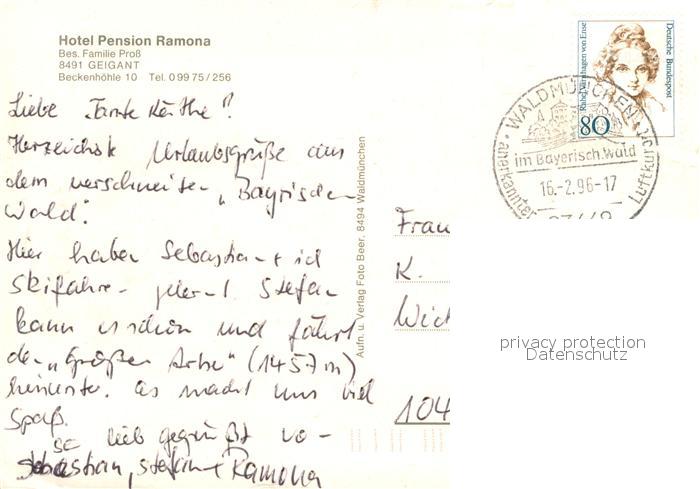 Hotel Pension Ramona
Bes. Familie Proß
8491 GEIGANT
Beckenhöhle 10 Tel. 0 99 75 / 256
Liebe „Tante Käthe"!
Herzlichste Urlaubsgrüße aus
dem verschneiten „Bayrischen
Wald".
Hier haben Sebastian + ich
Skifahren gelernt. Stefan
kann es schon und fährt
den „Großen Arber" (1457 m)
hinunter. Es macht uns viel
Spaß.
So lieb gegrüßt von
Sebastian, Stefan + Ramona
Aufn. u. Verlag Foto Beer, 8494 Waldmünchen
Deutsche Bundespost
Rahel Varnhagen von Ense
80
WALDMÜNCHEN
im Bayerisch. Wald
16.-2.96-17
anerkannter
Luftkurort
93449
Frau
K.
104
privacy protection
Datenschutz